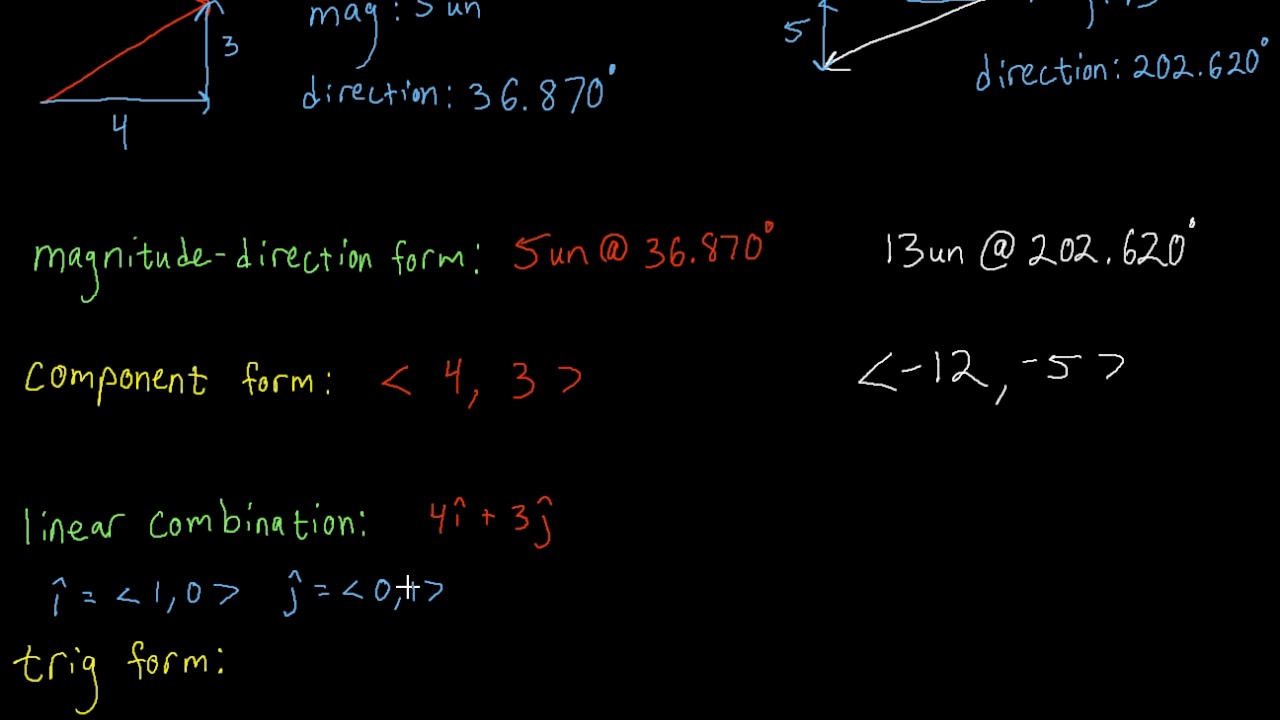 mag: 5 un
3
5
direction: 36.870°
direction: 202.620°
4
magnitude-direction form: 5un @ 36.870° 13un @ 202.620°
component form: < 4, 3 > <-12, -5 >
linear combination: 4î + 3ĵ
î = <1,0> ĵ = <0,1>
trig form: